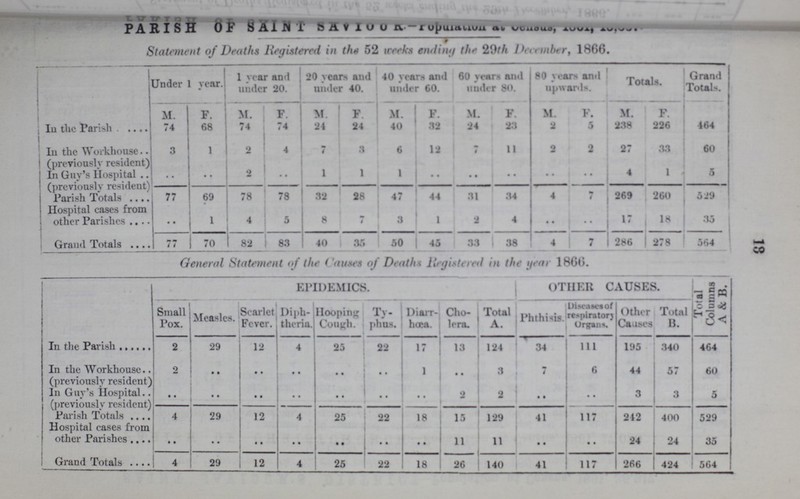 PARISH OF SAINT SAVIOUR.—Population at Census, 1861,
Statement of Deaths Registered in the 52 weeks ending the 29th December, 1866.
Under 1 year. 1 year and under 20. 20 years and under 40. 40 years and under 60. 60 years and under 80. 80 years and upwards. Totals. Grand Totals.
M. F. M. F. M. F. M. F. M. F. M. F. M. F.
In the Parish .... 74 68 74 74 24 24 40 32 24 23 2 5 238 226 464
In the Workhouse.. 3 1 2 4 7 3 6 12 7 11 2 2 27 33 60
(previously resident)
In Guy's Hospital .. .. .. 2 .. 1 1 1 .. .. .. .. .. 4 1 5
(previously resident)
Parish Totals .... 77 69 78 78 32 28 47 44 31 34 4 7 269 260 529
Hospital cases from
other Parishes .... .. 1 4 5 8 7 3 1 2 4 .. .. 17 18 35
Grand Totals .... 77 70 82 83 40 35 50 45 33 38 4 7 286 278 564
13
General Statement of the Causes of Deaths Registered in the year 1866.
EPIDEMICS. OTHER CAUSES. Total Columns A & B.
Small Pox. Measles. Scarlet Fever. Diphtheria. Hooping Cough. Typhus. Diarrhœa. Cholera. Total A. Phthisis. Diseases of respiratory Organs. Other Causes Total B.
In the Parish ...... 2 29 12 4 25 22 17 13 124 34 111 195 340 464
In the Workhouse.. 2 .. .. .. .. .. 1 .. 3 7 6 44 57 60
(previously resident)
In Guy's Hospital.. .. .. .. .. .. .. .. 2 2 .. .. 3 3 5
(previously resident)
Parish Totals .... 4 29 12 4 25 22 18 15 129 41 117 242 400 529
Hospital cases from
other Parishes .... .. .. .. .. .. .. .. 11 11 .. .. 24 24 35
Grand Totals .... 4 29 12 4 25 22 18 26 140 41 117 266 424 564